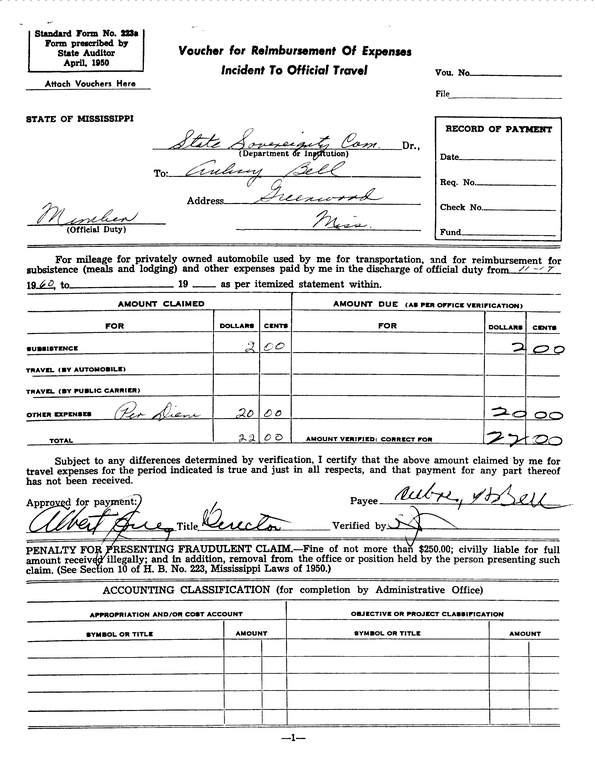 Standard Form No. 223a
Form prescribed by
State Auditor
April, 1950
Attach Vouchers Here
Voucher for Reimbursement Of Expenses
Incident To Official Travel
Vou. No.
File
STATE OF MISSISSIPPI
State Sovereignty Com. Dr.,
(Department or Institution)
To: Aubrey Bell
Address Greenwood
Miss.
Member
(Official Duty)
RECORD OF PAYMENT
Date
Req. No.
Check No.
Fund
For mileage for privately owned automobile used by me for transportation, and for reimbursement for
subsistence (meals and lodging) and other expenses paid by me in the discharge of official duty from 11-17
1960, to 19 as per itemized statement within.
AMOUNT CLAIMED AMOUNT DUE (AS PER OFFICE VERIFICATION)
FOR DOLLARS CENTS FOR DOLLARS CENTS
SUBSISTENCE 2 00 2 00
TRAVEL (BY AUTOMOBILE)
TRAVEL (BY PUBLIC CARRIER)
OTHER EXPENSES Per Diem 20 00 20 00
TOTAL 22 00 AMOUNT VERIFIED: CORRECT FOR 22 00
Subject to any differences determined by verification, I certify that the above amount claimed by me for
travel expenses for the period indicated is true and just in all respects, and that payment for any part thereof
has not been received.
Approved for payment: Payee Aubrey H Bell
Albert Title Director Verified by
PENALTY FOR PRESENTING FRAUDULENT CLAIM.—Fine of not more than $250.00; civilly liable for full
amount received illegally; and in addition, removal from the office or position held by the person presenting such
claim. (See Section 10 of H. B. No. 223, Mississippi Laws of 1950.)
ACCOUNTING CLASSIFICATION (for completion by Administrative Office)
APPROPRIATION AND/OR COST ACCOUNT OBJECTIVE OR PROJECT CLASSIFICATION
SYMBOL OR TITLE AMOUNT SYMBOL OR TITLE AMOUNT
—1—